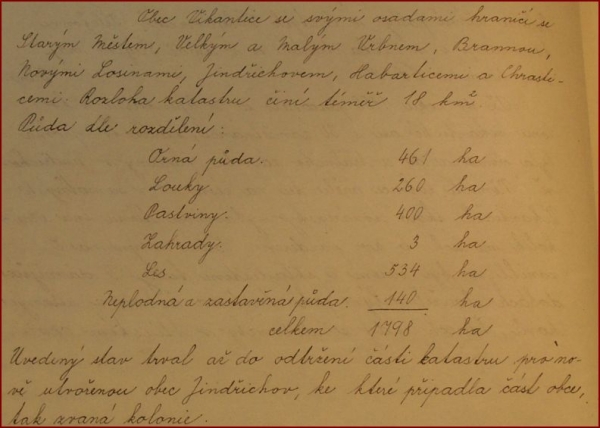 Obec Vikantice se svými osadami hraničí se
Starým Městem, Velkým a Malým Vrbnem, Brannou,
Novými Losinami, Jindřichovem, Habarticemi a Chrasti-
cemi. Rozloha katastru činí téměř 18 km².
Půda dle rozdělení:
Orná půda. 461 ha
Louky. 260 ha
Pastviny. 400 ha
Zahrady. 3 ha
Les. 534 ha
Neplodná a zastavěná půda. 140 ha
celkem 1798 ha
Uvedený stav trval až do odtržení části katastru pro no-
vě utvořenou obec Jindřichov, ke které připadla část obce,
tak zvaná kolonie.